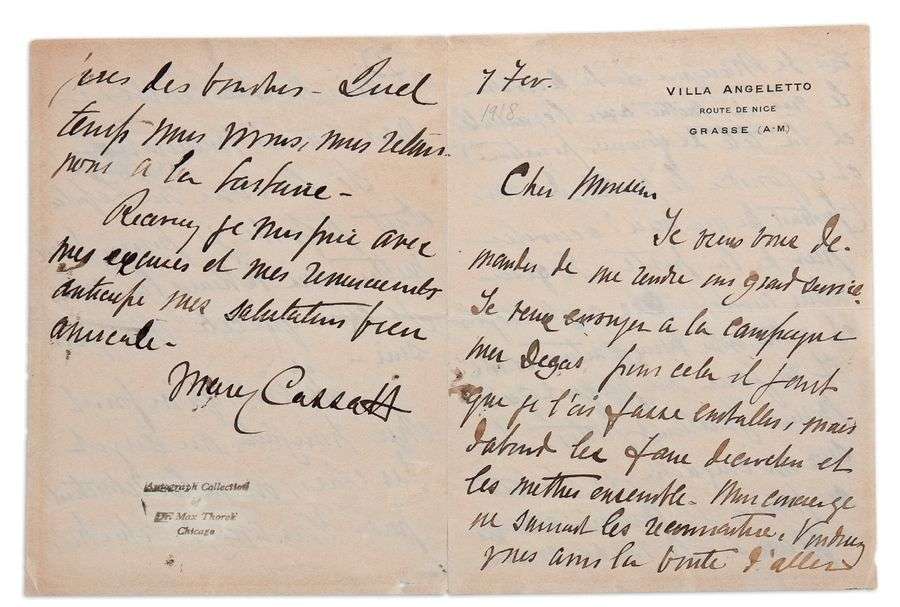 7 Fev.
1918
VILLA ANGELETTO
ROUTE DE NICE
GRASSE (A-M)
Cher Monsieur
Je viens vous de-
mander de me rendre un grand service.
Je veux envoyer a la campagne
mes Degas, pour cela il faut
que je fasse emballer, mais
d'abord les faire decrocher et
les mettre ensemble - Mon concierge
ne saurait les reconnaitre. Voudriez
vous avoir la bonté d'aller
des bombes - Quel
temps nous vivons, nous retour-
nons a la barbarie -
Recevez je vous prie avec
mes excuses et mes remerciements
anticipe mes salutations bien
amicale -
Mary Cassatt
Autograph Collection
of
Dr. Max Thorek
Chicago